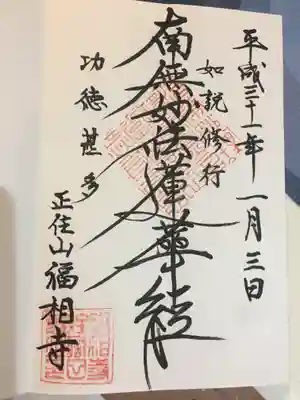 平成三十一年一月三日
如説修行
南無妙法蓮華経
功徳甚多
正住山福相寺